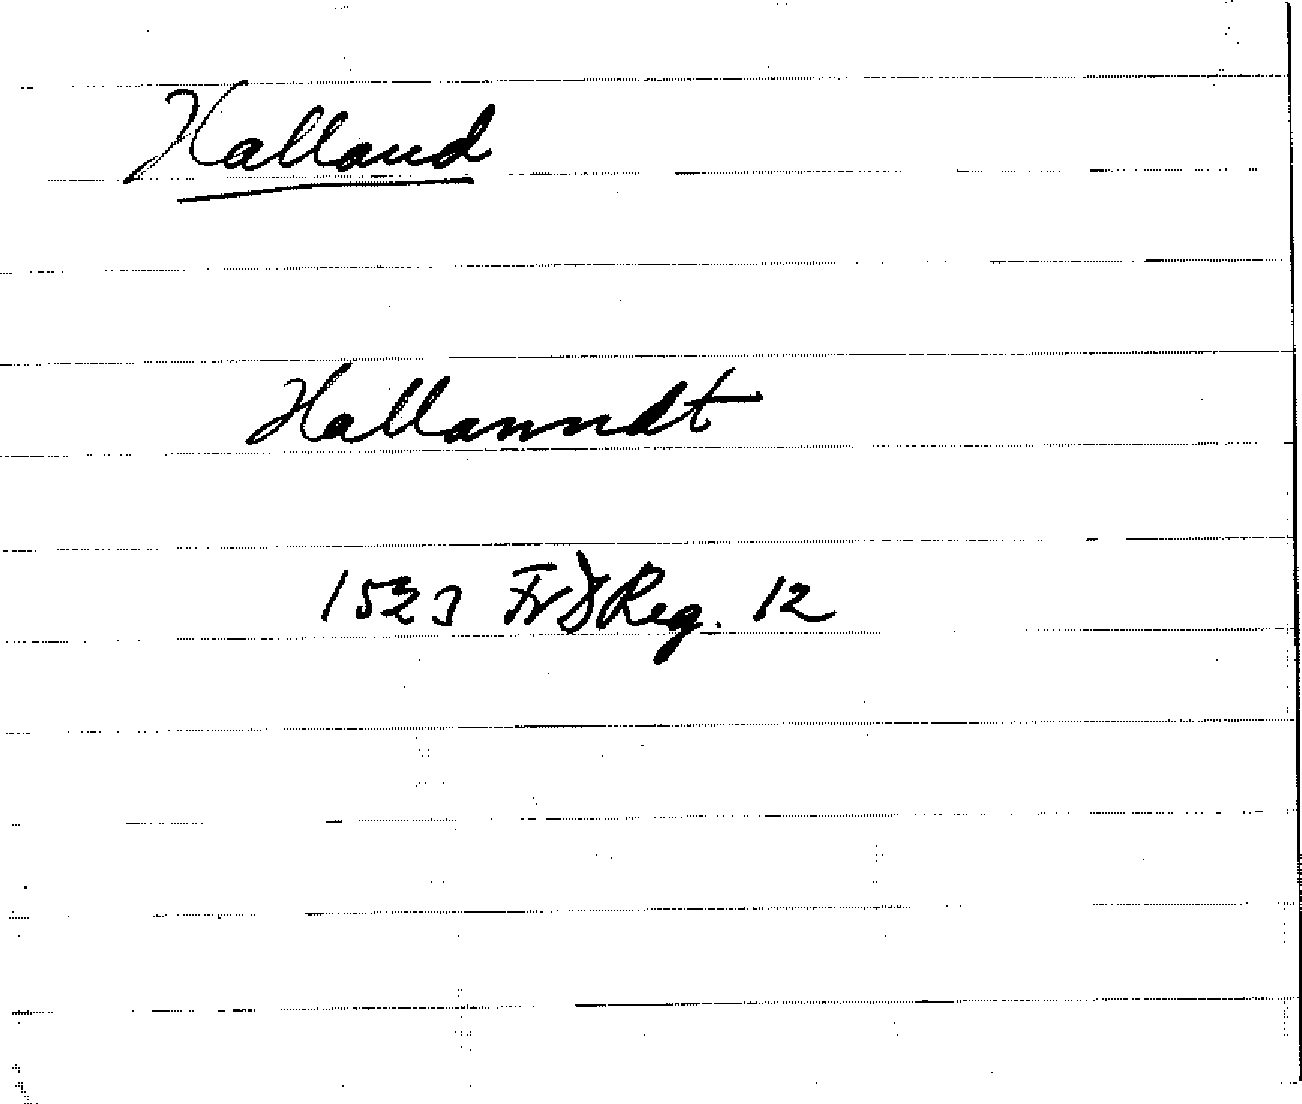 Halland
Hallanndt
1523 FrIReg. 12